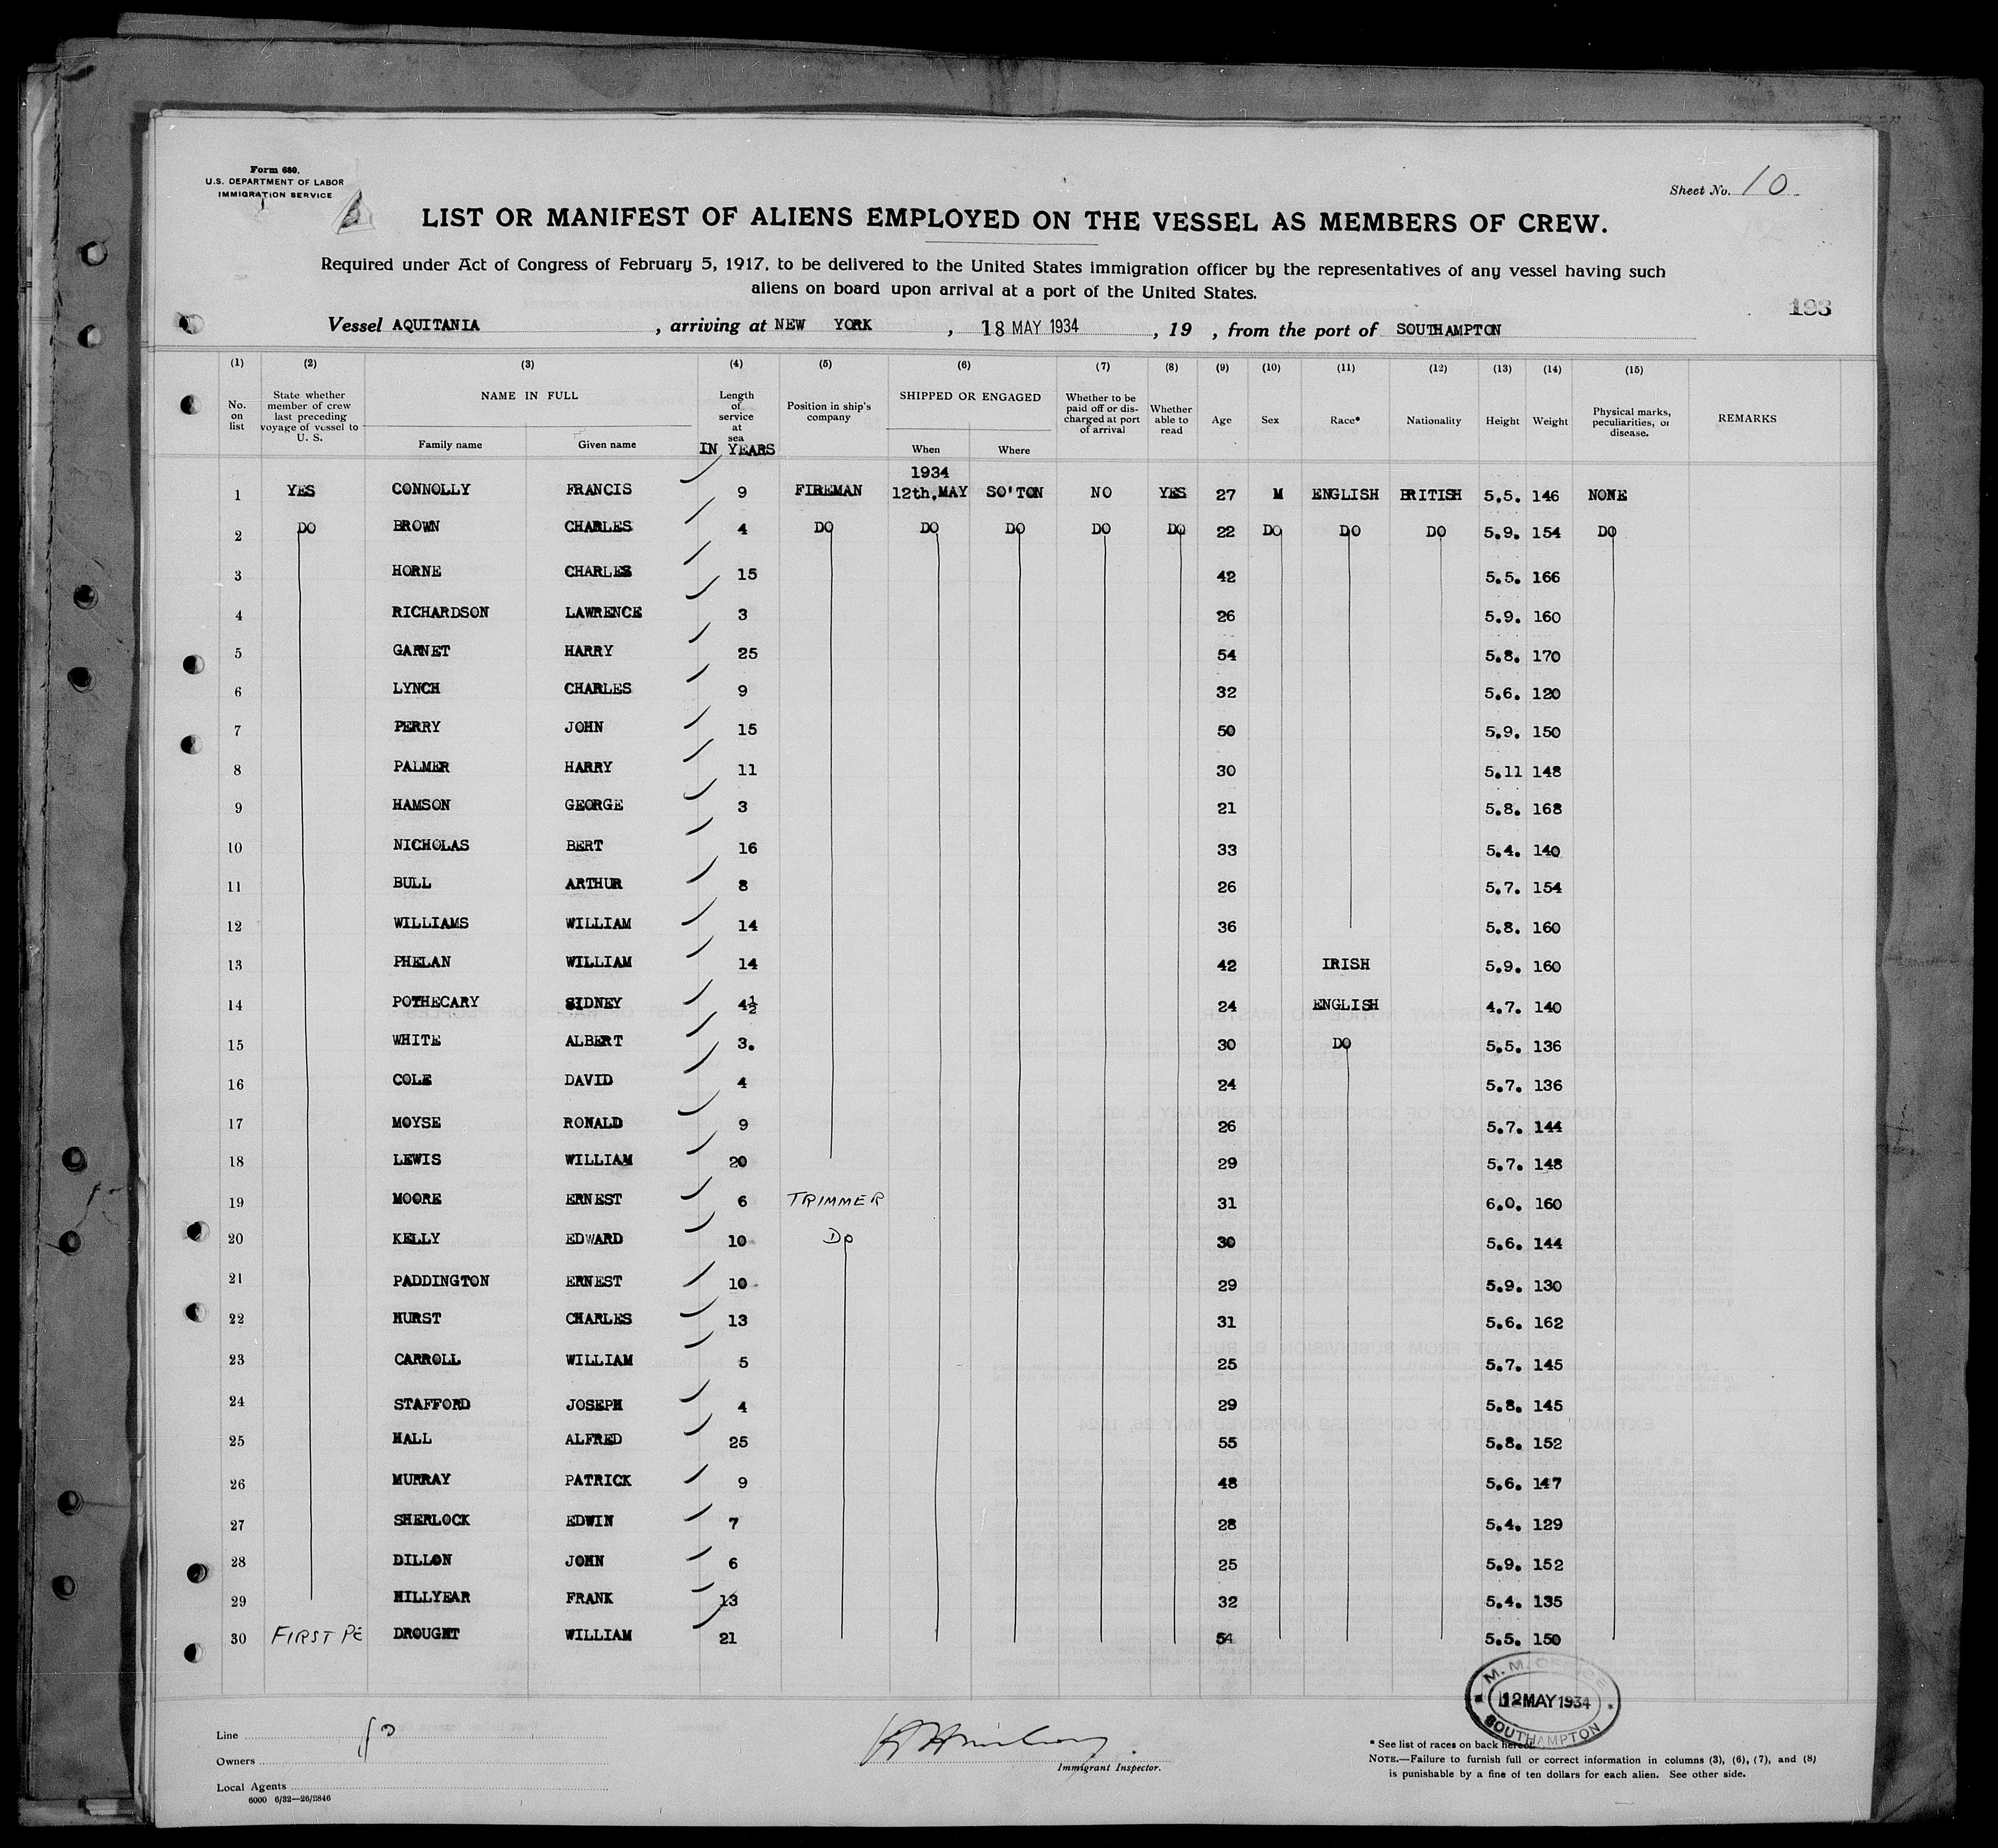 Form 680.
U.S. DEPARTMENT OF LABOR
IMMIGRATION SERVICE
Sheet No. 10
LIST OR MANIFEST OF ALIENS EMPLOYED ON THE VESSEL AS MEMBERS OF CREW.
Required under Act of Congress of February 5, 1917, to be delivered to the United States immigration officer by the representatives of any vessel having such
aliens on board upon arrival at a port of the United States.
193
Vessel AQUITANIA , arriving at NEW YORK , 18 MAY 1934 , 19 , from the port of SOUTHAMPTON
(1) (2) (3) (4) (5) (6) (7) (8) (9) (10) (11) (12) (13) (14) (15)
No. on list State whether member of crew last preceding voyage of vessel to U. S. NAME IN FULL Family name Given name Length of service at sea IN YEARS Position in ship's company SHIPPED OR ENGAGED When Where Whether to be paid off or discharged at port of arrival Whether able to read Age Sex Race* Nationality Height Weight Physical marks, peculiarities, or disease. REMARKS
1934
1 YES CONNOLLY FRANCIS 9 FIREMAN 12th,MAY SO'TON NO YES 27 M ENGLISH BRITISH 5.5. 146 NONE
2 DO BROWN CHARLES 4 DO DO DO DO DO 22 DO DO DO 5.9. 154 DO
3 HORNE CHARLES 15 42 5.5. 166
4 RICHARDSON LAWRENCE 3 26 5.9. 160
5 GARNET HARRY 25 54 5.8. 170
6 LYNCH CHARLES 9 32 5.6. 120
7 PERRY JOHN 15 50 5.9. 150
8 PALMER HARRY 11 30 5.11 148
9 HAMSON GEORGE 3 21 5.8. 168
10 NICHOLAS BERT 16 33 5.4. 140
11 BULL ARTHUR 8 26 5.7. 154
12 WILLIAMS WILLIAM 14 36 5.8. 160
13 PHELAN WILLIAM 14 42 IRISH 5.9. 160
14 POTHECARY SIDNEY 4½ 24 ENGLISH 4.7. 140
15 WHITE ALBERT 3. 30 DO 5.5. 136
16 COLE DAVID 4 24 5.7. 136
17 MOYSE RONALD 9 26 5.7. 144
18 LEWIS WILLIAM 20 29 5.7. 148
19 MOORE ERNEST 6 TRIMMER 31 6.0. 160
20 KELLY EDWARD 10 DO 30 5.6. 144
21 PADDINGTON ERNEST 10 29 5.9. 130
22 HURST CHARLES 13 31 5.6. 162
23 CARROLL WILLIAM 5 25 5.7. 145
24 STAFFORD JOSEPH 4 29 5.8. 145
25 HALL ALFRED 25 55 5.8. 152
26 MURRAY PATRICK 9 48 5.6. 147
27 SHERLOCK EDWIN 7 28 5.4. 129
28 DILLON JOHN 6 25 5.9. 152
29 HILLYEAR FRANK 13 32 5.4. 135
30 FIRST PE DROUGHT WILLIAM 21 54 5.5. 150
M. M. OFFICE
12 MAY 1934
SOUTHAMPTON
Line
Owners
Local Agents
6000 6/32—26/2846
Immigrant Inspector.
* See list of races on back hereof.
NOTE.—Failure to furnish full or correct information in columns (3), (6), (7), and (8)
is punishable by a fine of ten dollars for each alien. See other side.